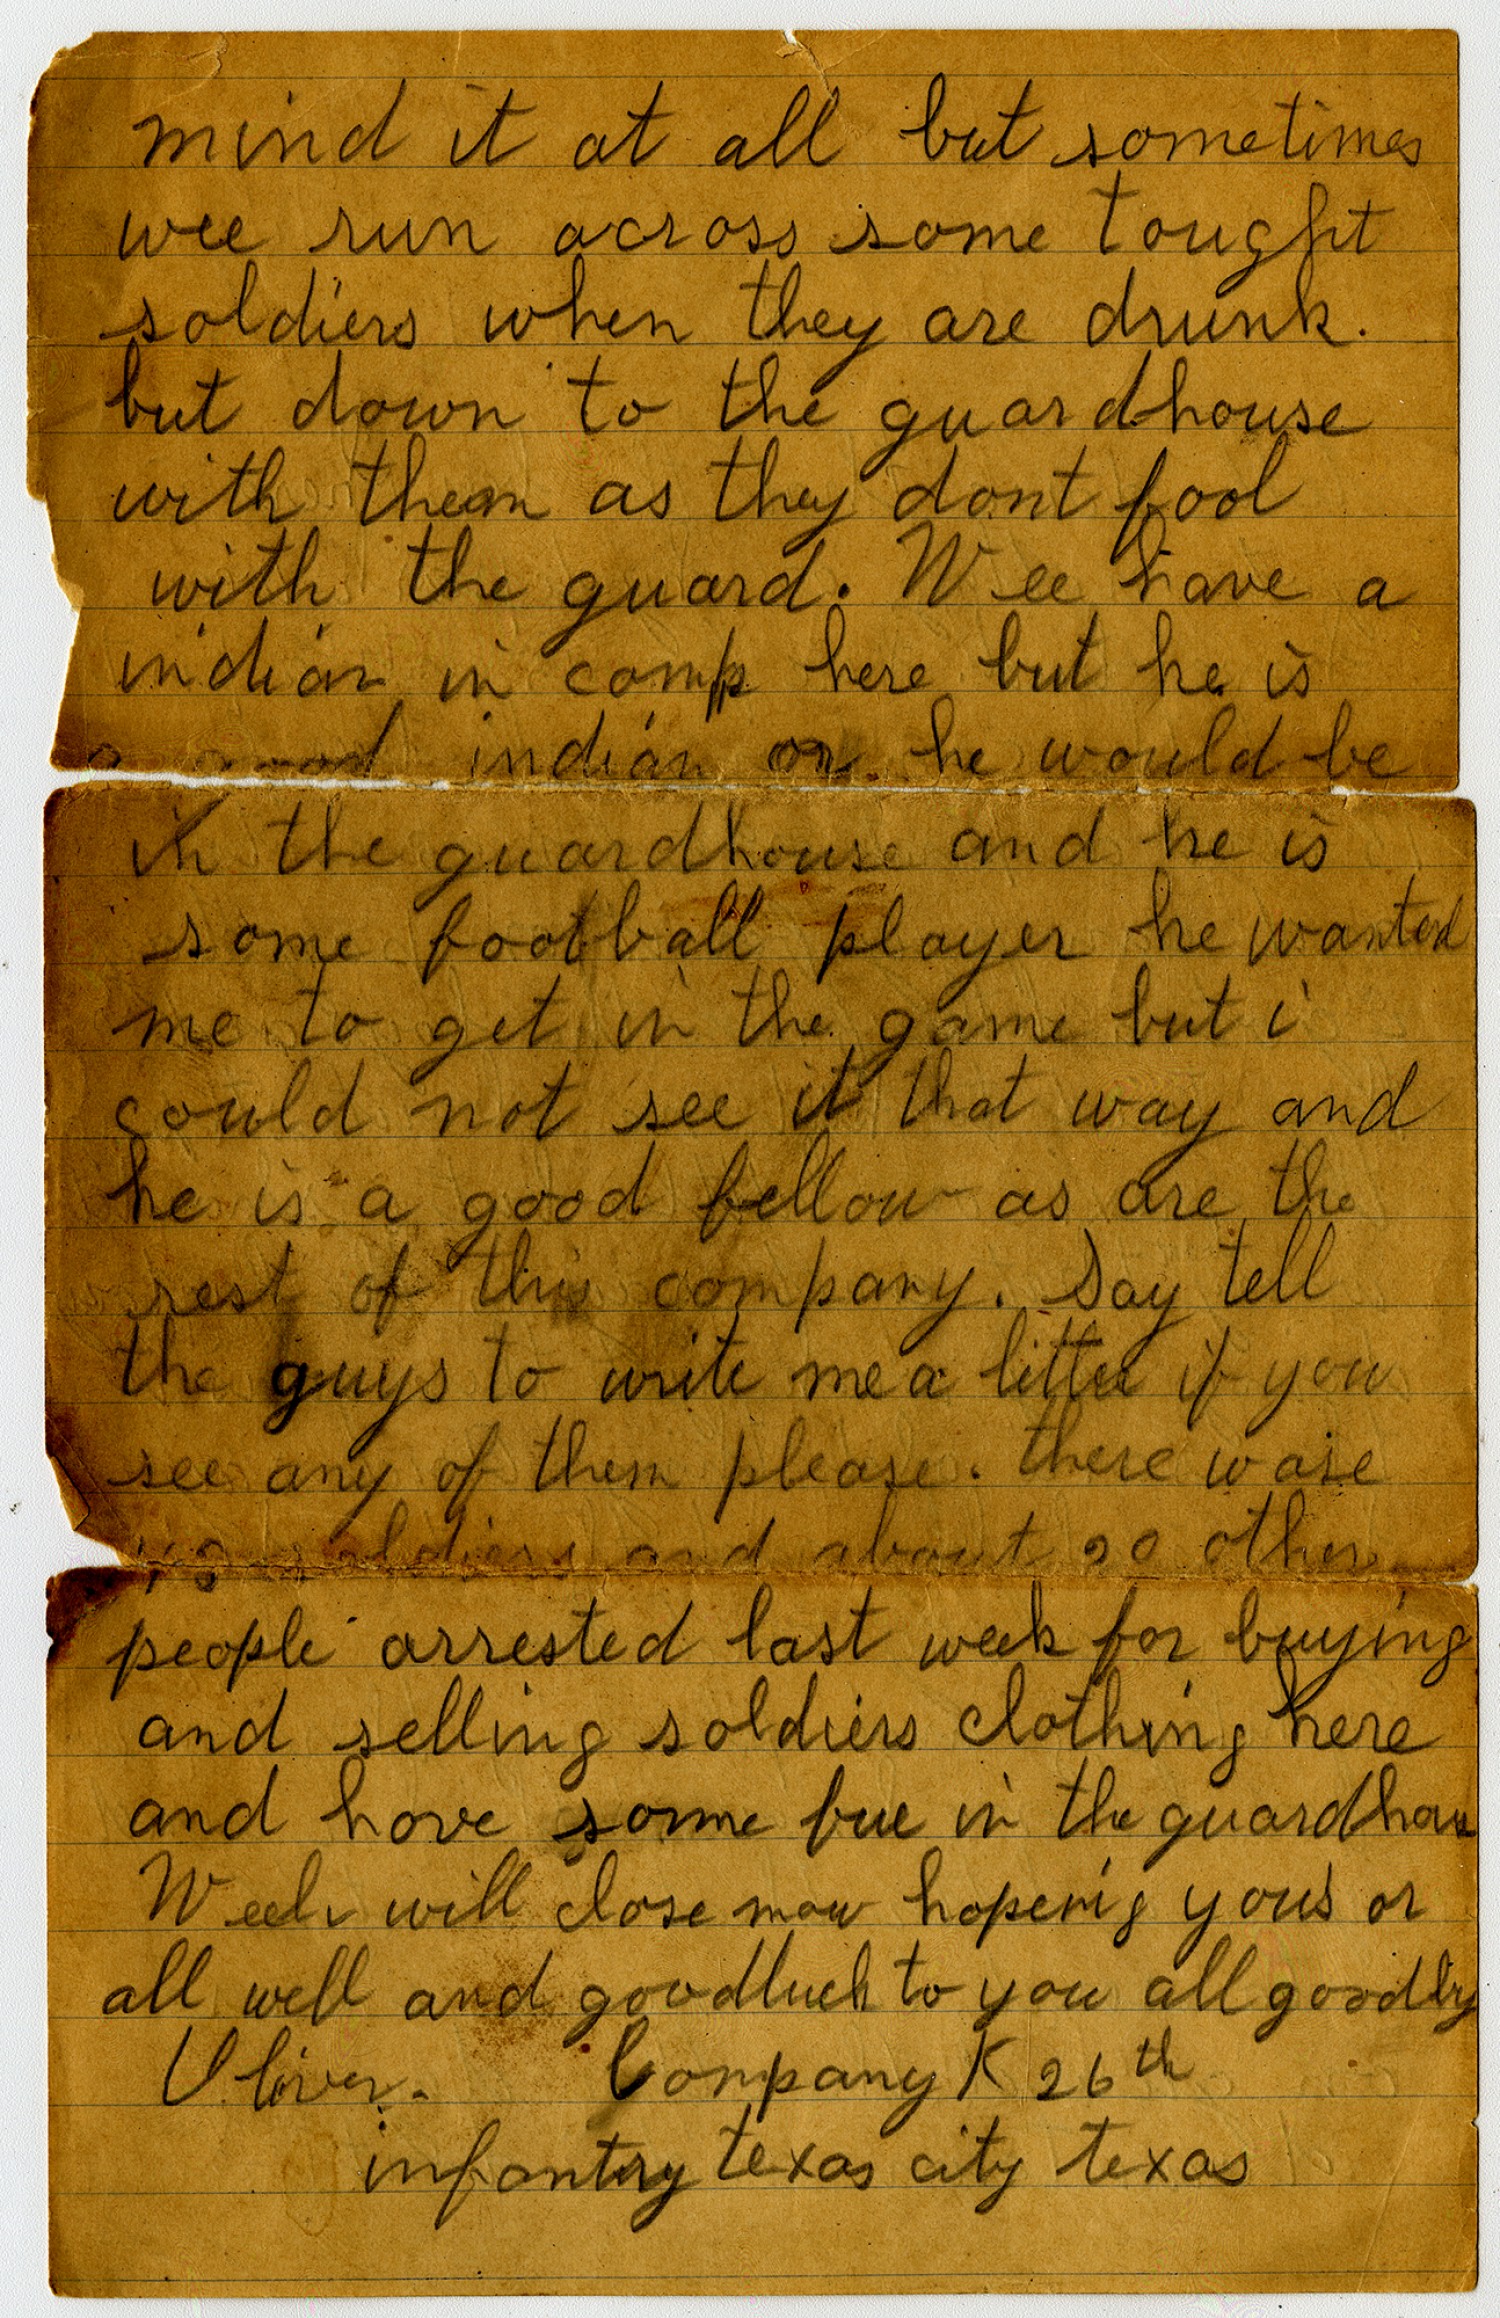 mind it at all but sometimes
wee run across some tought
soldiers when they are drunk.
but down to the guardhouse
with them as they dont fool
with the guard. Wee have a
indian in camp here but he is
a good indian or he would be
in the guardhouse and he is
some football player he wanted
me to get in the game but i
could not see it that way and
he is a good fellow as are the
rest of this company. Say tell
the guys to write me a letter if you
see any of them please. there ware
soldiers and about 20 other
people arrested last week for buying
and selling soldiers clothing here
and have some fue in the guardhous
will close now hopeing
all well and goodluck to you all goodby
Oliver. Company K 26th
infantry texas city texas